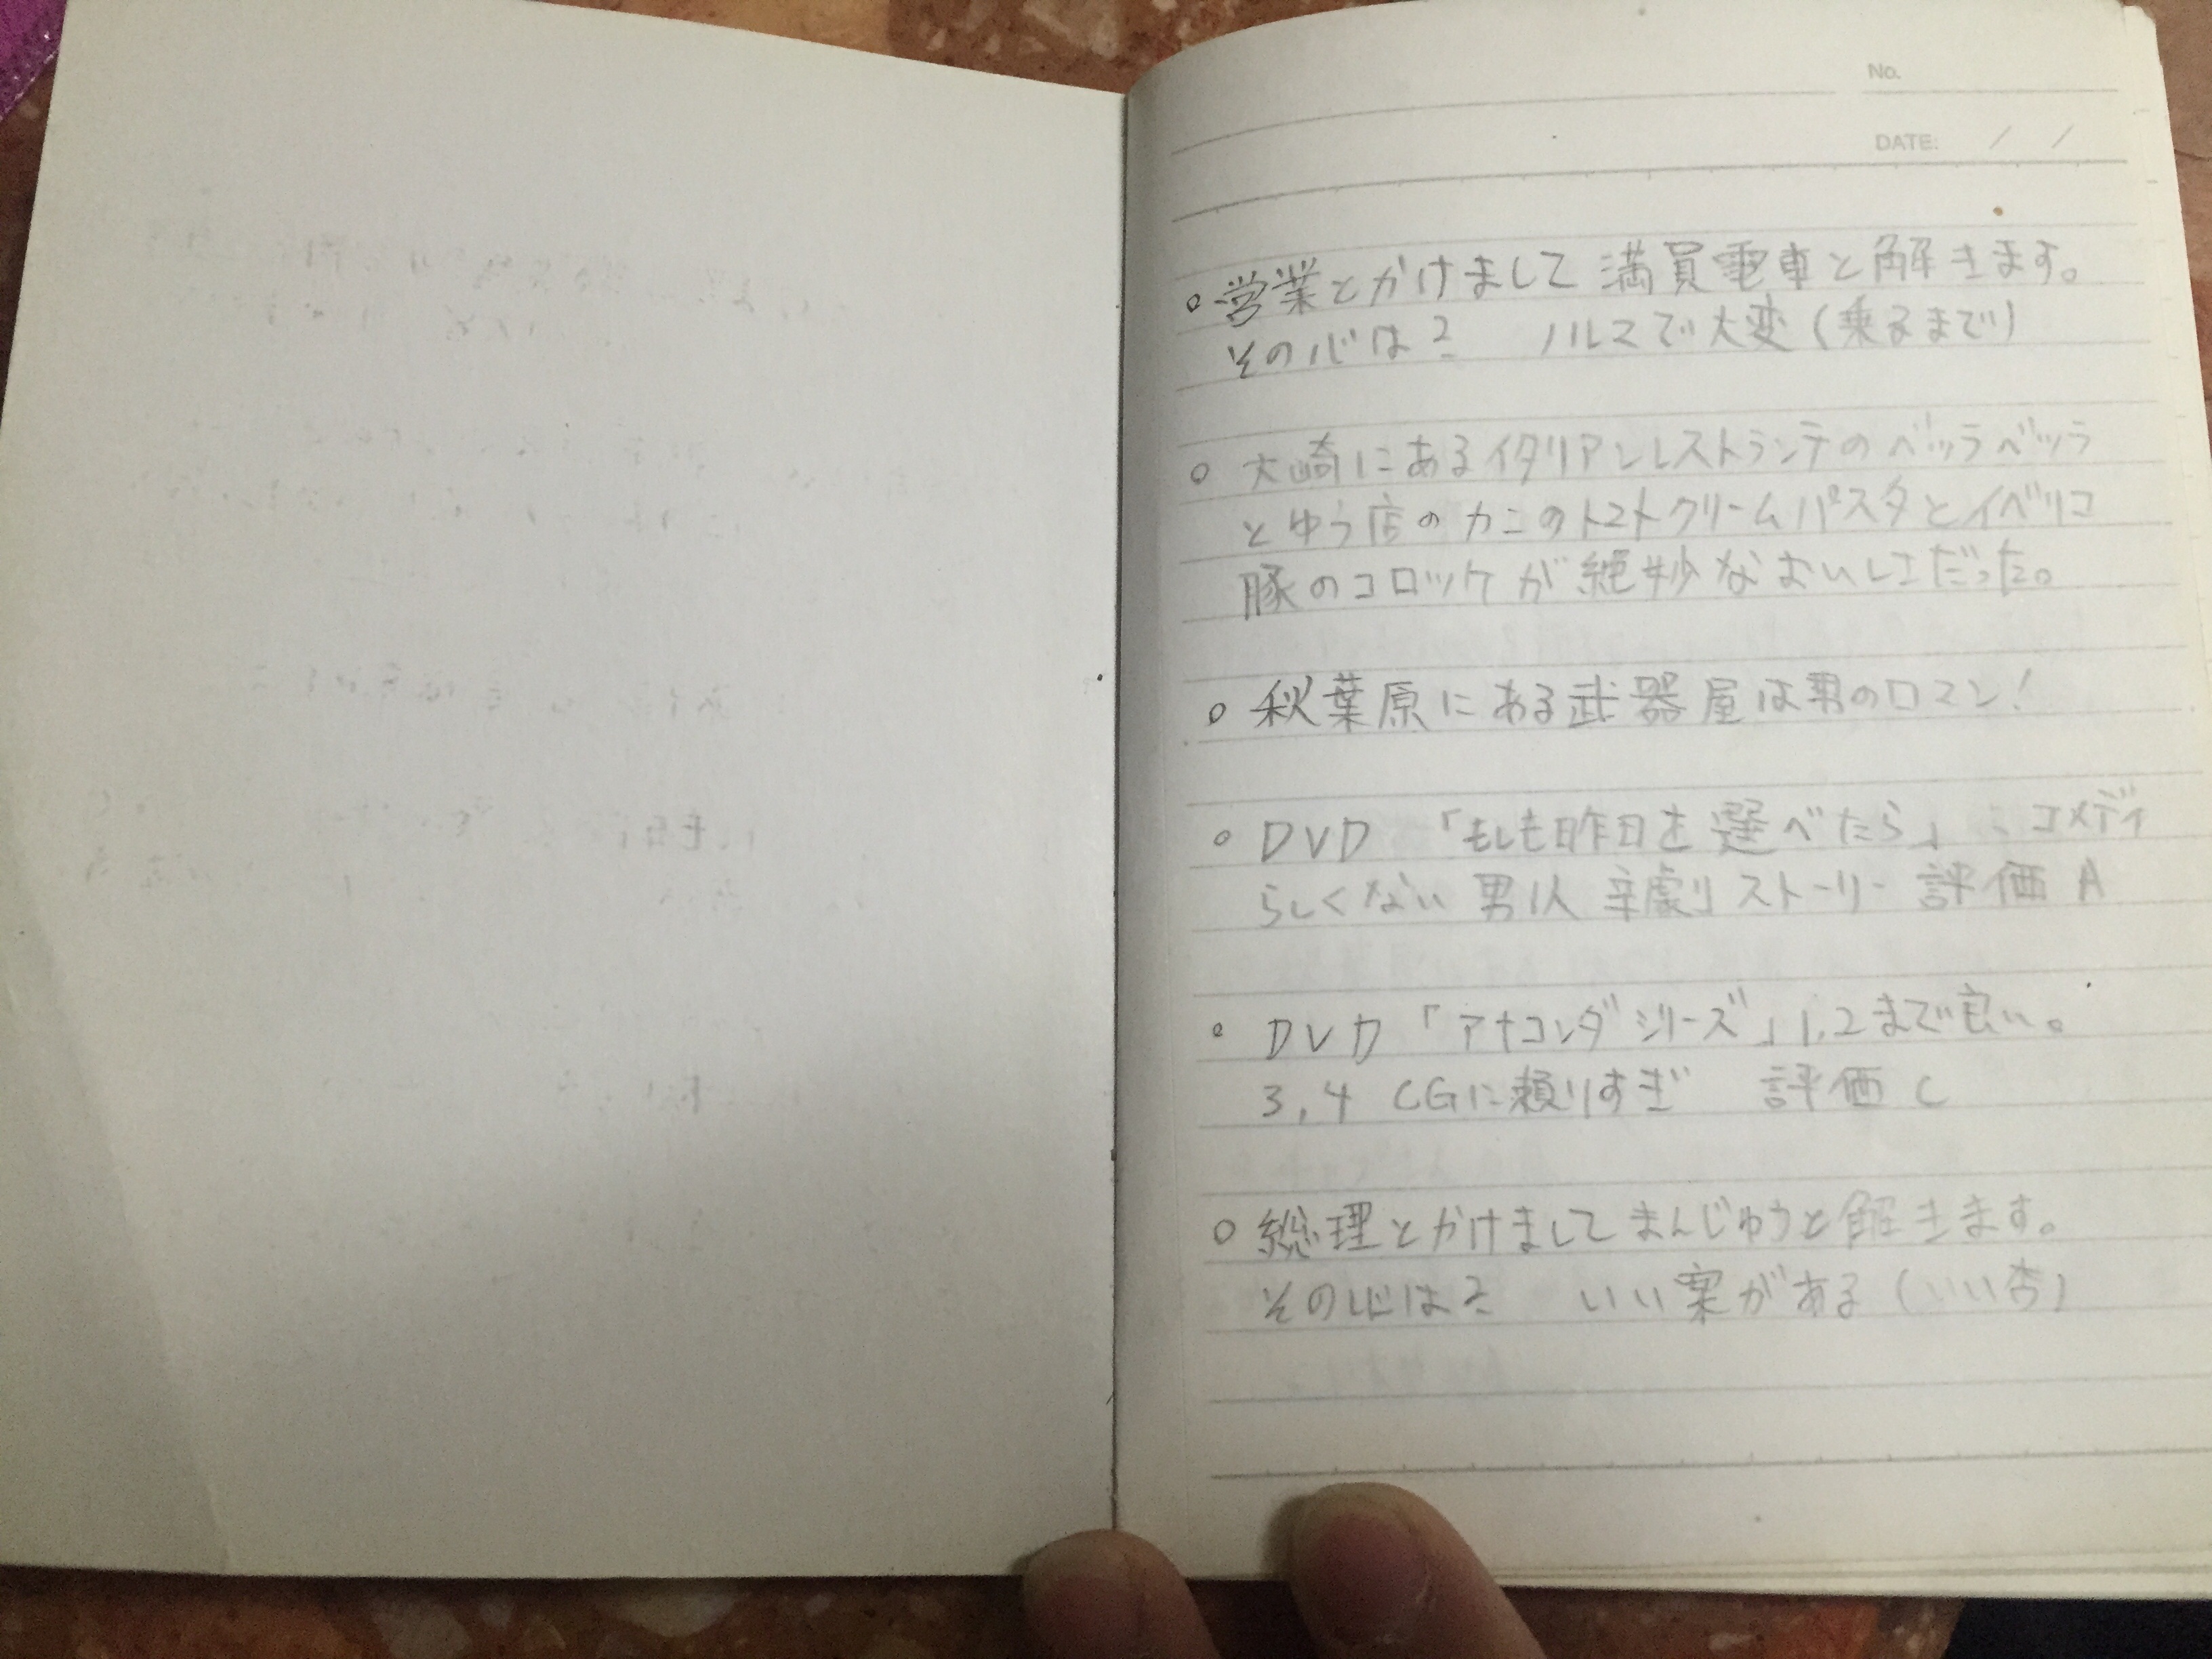 No.
DATE: / /
○ 営業とかけまして満員電車と解きます。
その心は? ノルマで大変(乗るまで)
○ 大崎にあるイタリアンレストランテのベッラベッラ
とゆう店のカニのトマトクリームパスタとイベリコ
豚のコロッケが絶妙なおいしさだった。
○ 秋葉原にある武器屋は男のロマン!
○ DVD 「もしも昨日を選べたら」:コメディ
らしくない男1人辛劇ストーリー 評価 A
○ DVD 「アナコンダシリーズ」1,2まで良い。
3,4 CGに頼りすぎ 評価 C
○ 総理とかけましてまんじゅうと解きます。
その心は? いい案がある(いい杏)